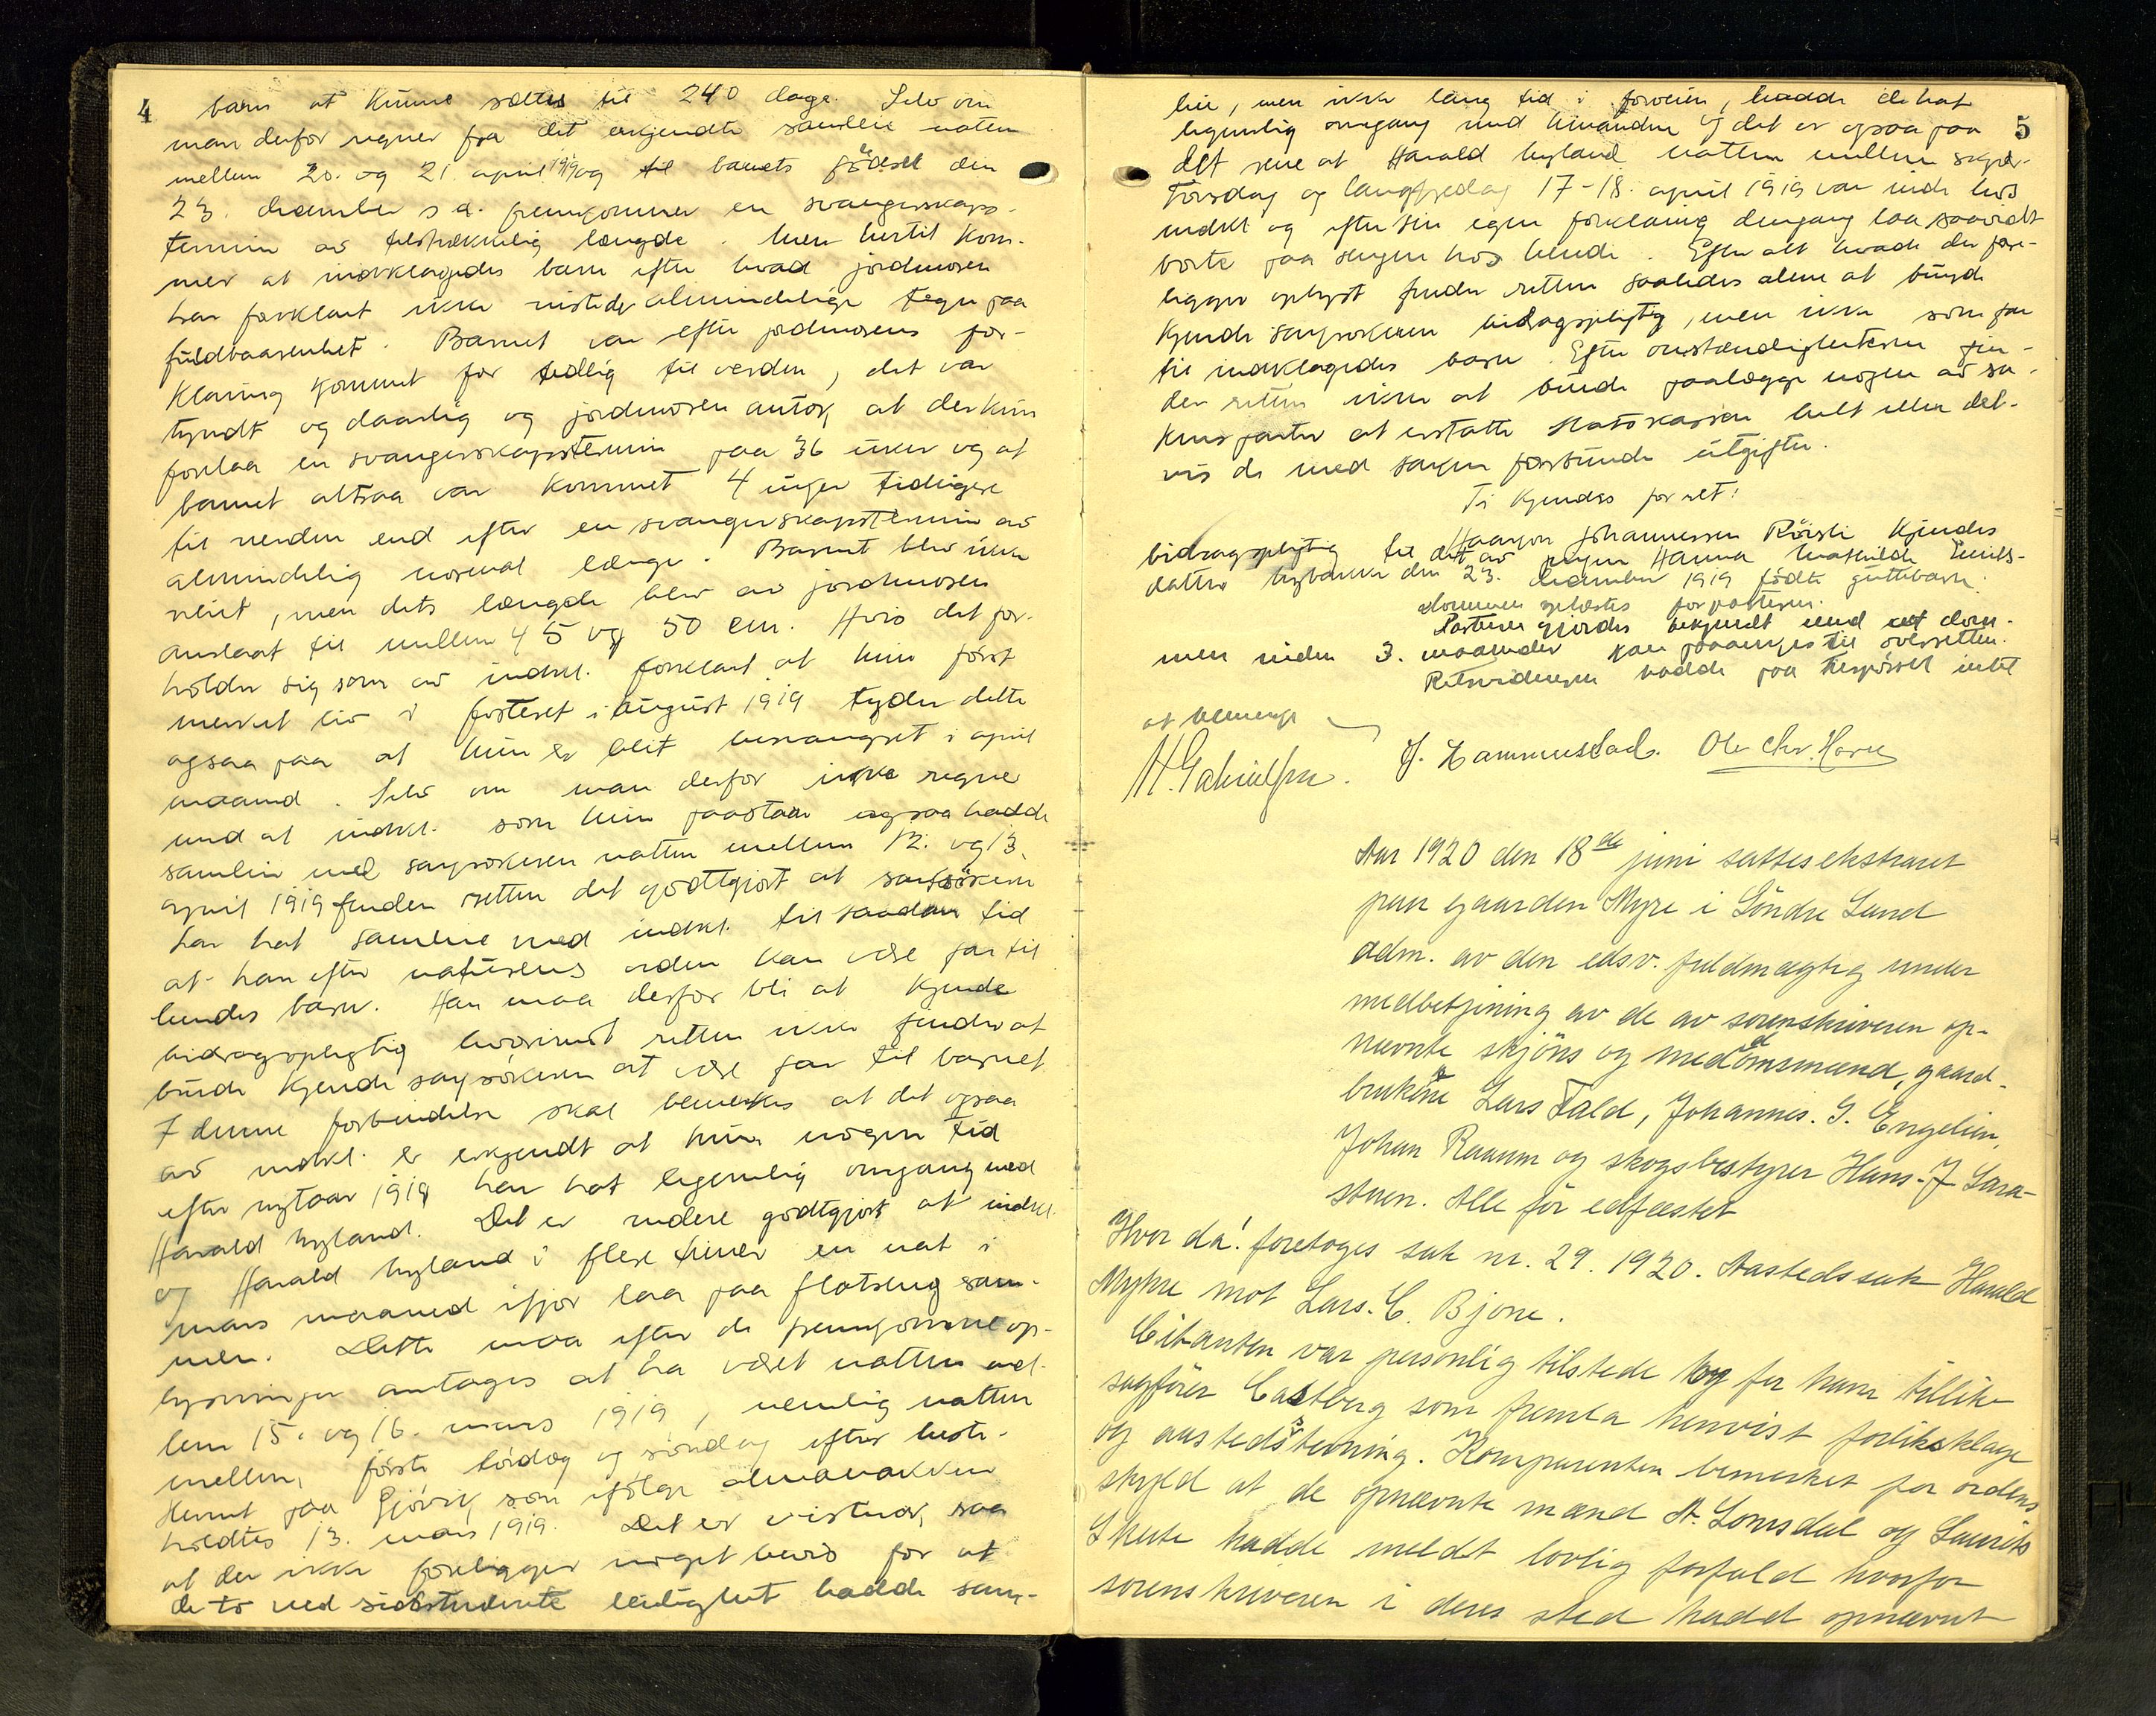 4
barn at kunne sættes til 240 dage. Selv om
man derfor regner fra det erkjendte samleie natten
mellem 20. og 21. april 1919 og til barnets fødsel den
23. december s.a. fremkommer en svangerskaps-
termin av tilstrækkelig længde. Men hertil kom-
mer at indklagedes barn efter hvad jordmoren
har forklart ikke viste de almindelige tegn paa
fuldbaarenhet. Barnet var efter jordmorens for-
klaring kommet for tidlig til verden, det var
tyndt og daarlig og jordmoren antok at der kun
forelaa en svangerskapstermin paa 36 uker og at
barnet altsaa var kommet 4 uker tidligere
til verden end efter en svangerskapstermin av
almindelig normal længe. Barnet blev ikke
veiet, men dets længde blev av jordmoren
anslaat til mellem 45 og 50 cm. Hvis det for-
holder sig som av indkl. forklart at hun först
merket liv i fosteret i august 1919 tyder dette
ogsaa paa at hun er blit besvangret i april
maaned. Selv om man derfor ikke regner
med at indkl. som hun paastaar ogsaa hadde
samleie med saksökeren natten mellem 12. og 13.
april 1919 finder retten det godtgjort at saksökeren
har hat samleie med indkl. til saadan tid
at han efter naturens orden kan være far til
hendes barn. Han maa derfor bli at kjende
bidragspligtig hvorimot retten ikke finder at
burde kjende saksökeren at være far til barnet
I denne forbindelse skal bemerkes at det ogsaa
av indkl. er erkjendt at hun nogen tid
efter nytaar 1919 har hat legemlig omgang med
Harald Nyland. Det er videre godtgjort at indkl.
og Harald Nyland i flere timer en nat i
mars maaned ifjor laa paa flatseng sam-
men. Dette maa efter de fremkomne op-
lysninger antages at ha været natten mel-
lem 15. og 16. mars 1919, nemlig natten
mellem første lördag og söndag efter heste-
kemnt paa Gjövik som ifölge almanakken
holdtes 13. mars 1919. Det er vistnok saa
at der ikke foreligger noget bevis for at
de to ved sidstnævnte leilighet hadde sam-
5
leie, men ikke lang tid i forveien, hadde de hat
legemlig omgang med hinanden og det er ogsaa paa
det rene at Harald Nyland natten mellem skjær-
torsdag og langfredag 17-18. april 1919 var inde hos
indkl og efter sin egen forklaring dengang laa saavidt
borte paa sengen hos hende. Efter alt hvad der fore-
ligger oplyst finder retten saaledes alene at burde
kjende saksökeren bidragspligtig, men ikke som far
til indklagedes barn. Efter omstændigheterne fin-
der retten ikke at burde paalægge nogen av sa-
kens parter at erstatte statskassen helt eller del-
vis de med saken forbundne utgifter.
Ti kjendes for ret:
Haakon Johannessen Röiseli kjendes
bidragspligtig til det av piken Hanna Mathilde Emils-
datter Nybakke den 23. december 1919 födte guttebarn.
Dommen oplæstes for parterne.
Parterne gjordes bekjendt med at dom-
men inden 3. maaneder kan paaankes til overretten.
Retsvidnerne hadde paa tilspörsel intet
at bemerke
H. Gabrielsen. J. Hammerstad. Ole Chr. Hovde
Aar 1920 den 18de juni sattes ekstraret
paa gaarden Myre i Söndre Land
adm. av den edsv. fuldmægtig under
medbetjening av de av sorenskriveren op-
nævnte skjöns og meddomsmænd, gaard-
brukerne Lars Fald, Johannes. G. Engelien,
Johan Raaum og skogsbestyrer Hans. J. Lara-
stuen. Alle før edfæstet
Hvor da! foretoges sak nr. 29. 1920. Aastedssak Harald
Myhre mot Lars. C. Bjone.
Citanten var personlig tilstede og for ham tillike
sagförer Castberg som fremla henvist forliksklage
og aastedsstevning. Komparenten bemerket for ordens
skyld at de opnævnte mænd A. Lomsdal og Laurits
Skute hadde meldt lovlig forfald hvorfor
sorenskriveren i deres sted hadd opnævnt